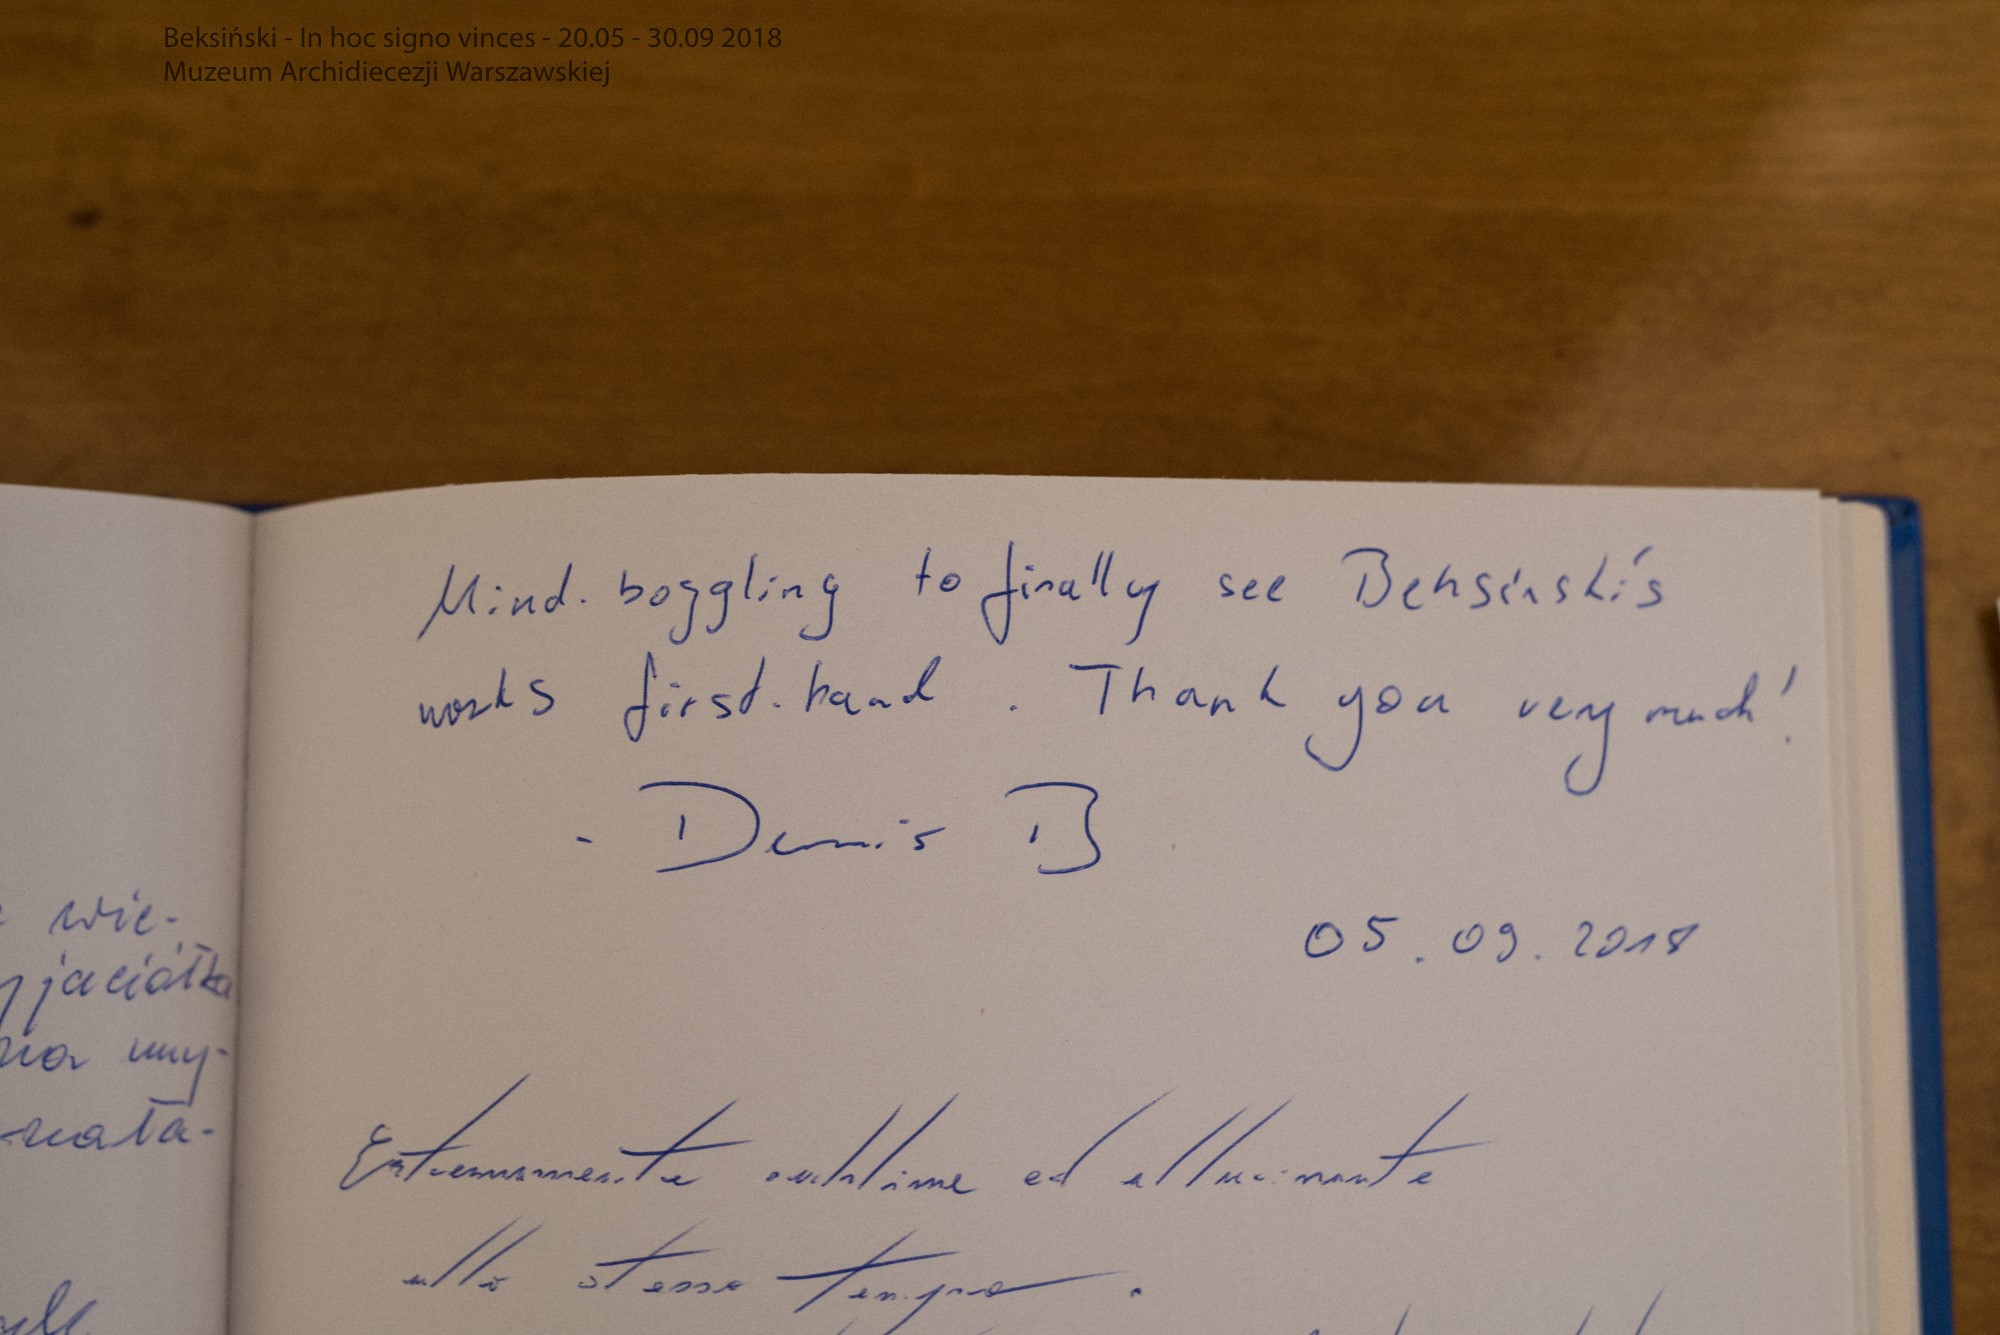 Beksiński - In hoc signo vinces - 20.05 - 30.09 2018
Muzeum Archidiecezji Warszawskiej
Mind-boggling to finally see Beksinski's
works first-hand. Thank you very much!
- Dennis B
05.09.2018
wie-
yjaciółka
na wy-
-nała-
Estremamente sublime ed allucinante
allo stesso tempo.